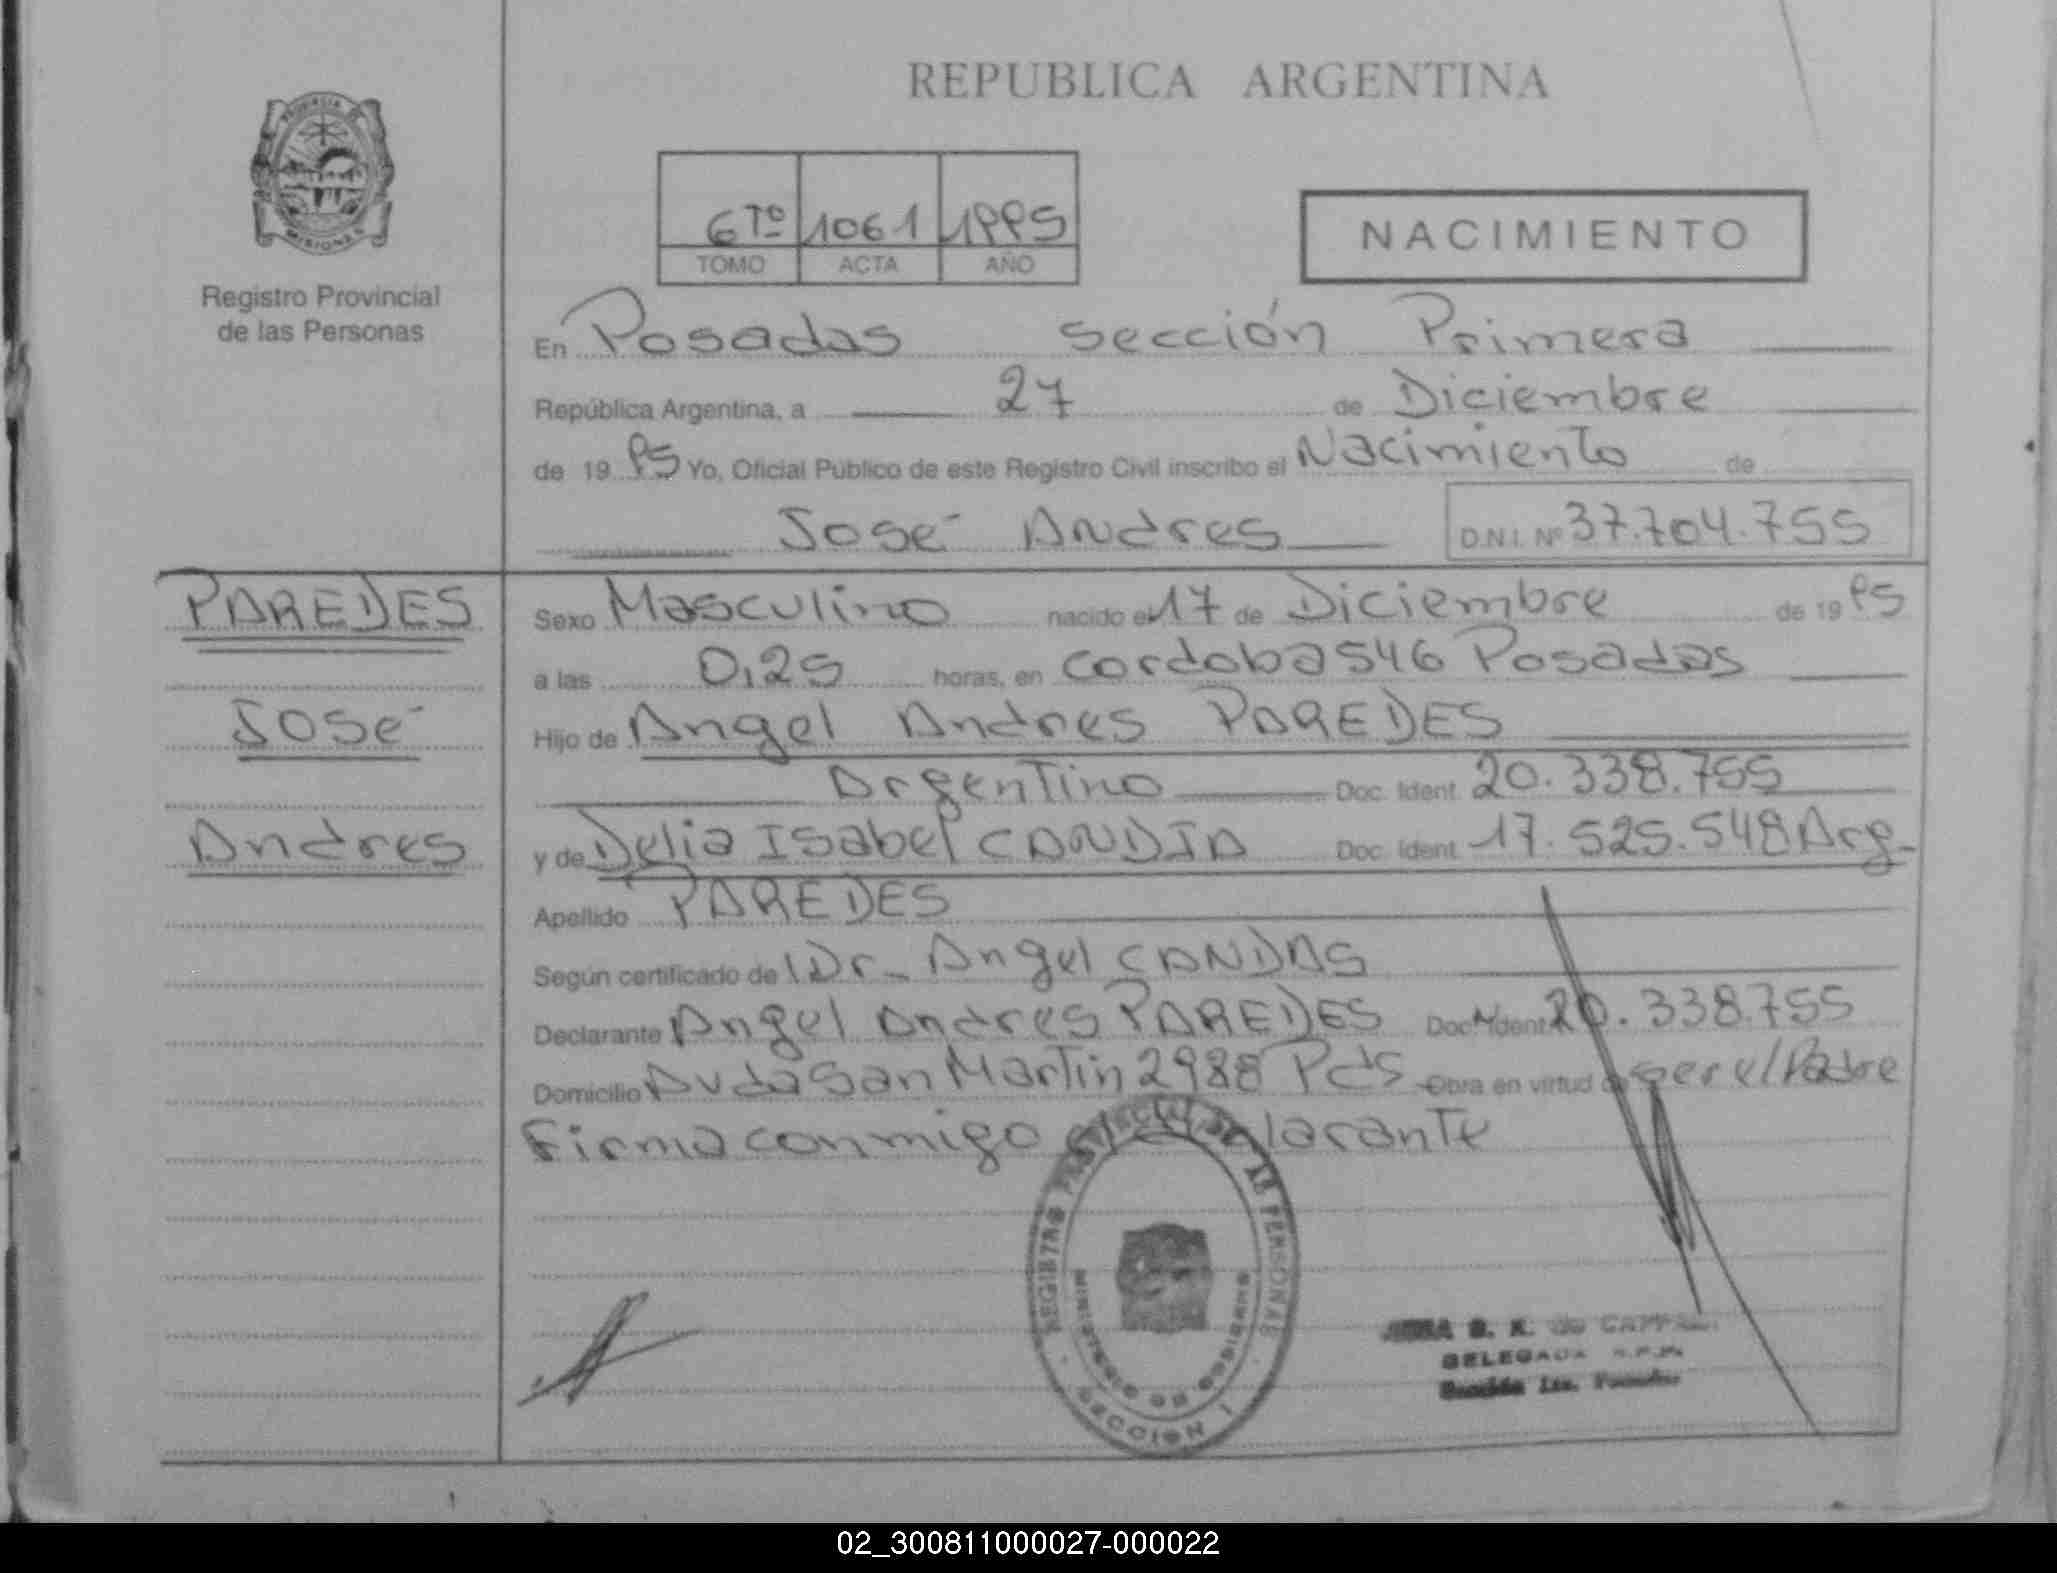 REPUBLICA ARGENTINA
PROVINCIA DE
MISIONES
Registro Provincial
de las Personas
6To 1061 1995
TOMO ACTA AÑO
NACIMIENTO
En Posadas sección Primera
República Argentina, a 27 de Diciembre
de 19 95 Yo, Oficial Público de este Registro Civil inscribo el Nacimiento de
José Andres D.N.I. Nº 37.704.755
PAREDES
José
Andres
Sexo Masculino nacido el 17 de Diciembre de 19 95
a las 0,25 horas, en cordoba 546 Posadas
Hijo de Angel Andres PAREDES
Argentino Doc. Ident. 20.338.755
y de Delia Isabel CANDIA Doc. Ident. 17.525.548 Arg-
Apellido PAREDES
Según certificado de Dr- Angel CANDAS
Declarante Angel Andres PAREDES Doc. Ident. 20.338.755
Domicilio Avda San Martin 2988 Pds Obra en virtud de ser el Padre
Firma conmigo el declarante
REGISTRO PROVINCIAL DE LAS PERSONAS
MINISTERIO DE GOBIERNO
SECCION 1
DELEGADA R.P.P.
Sección 1ra. Posadas
02_300811000027-000022